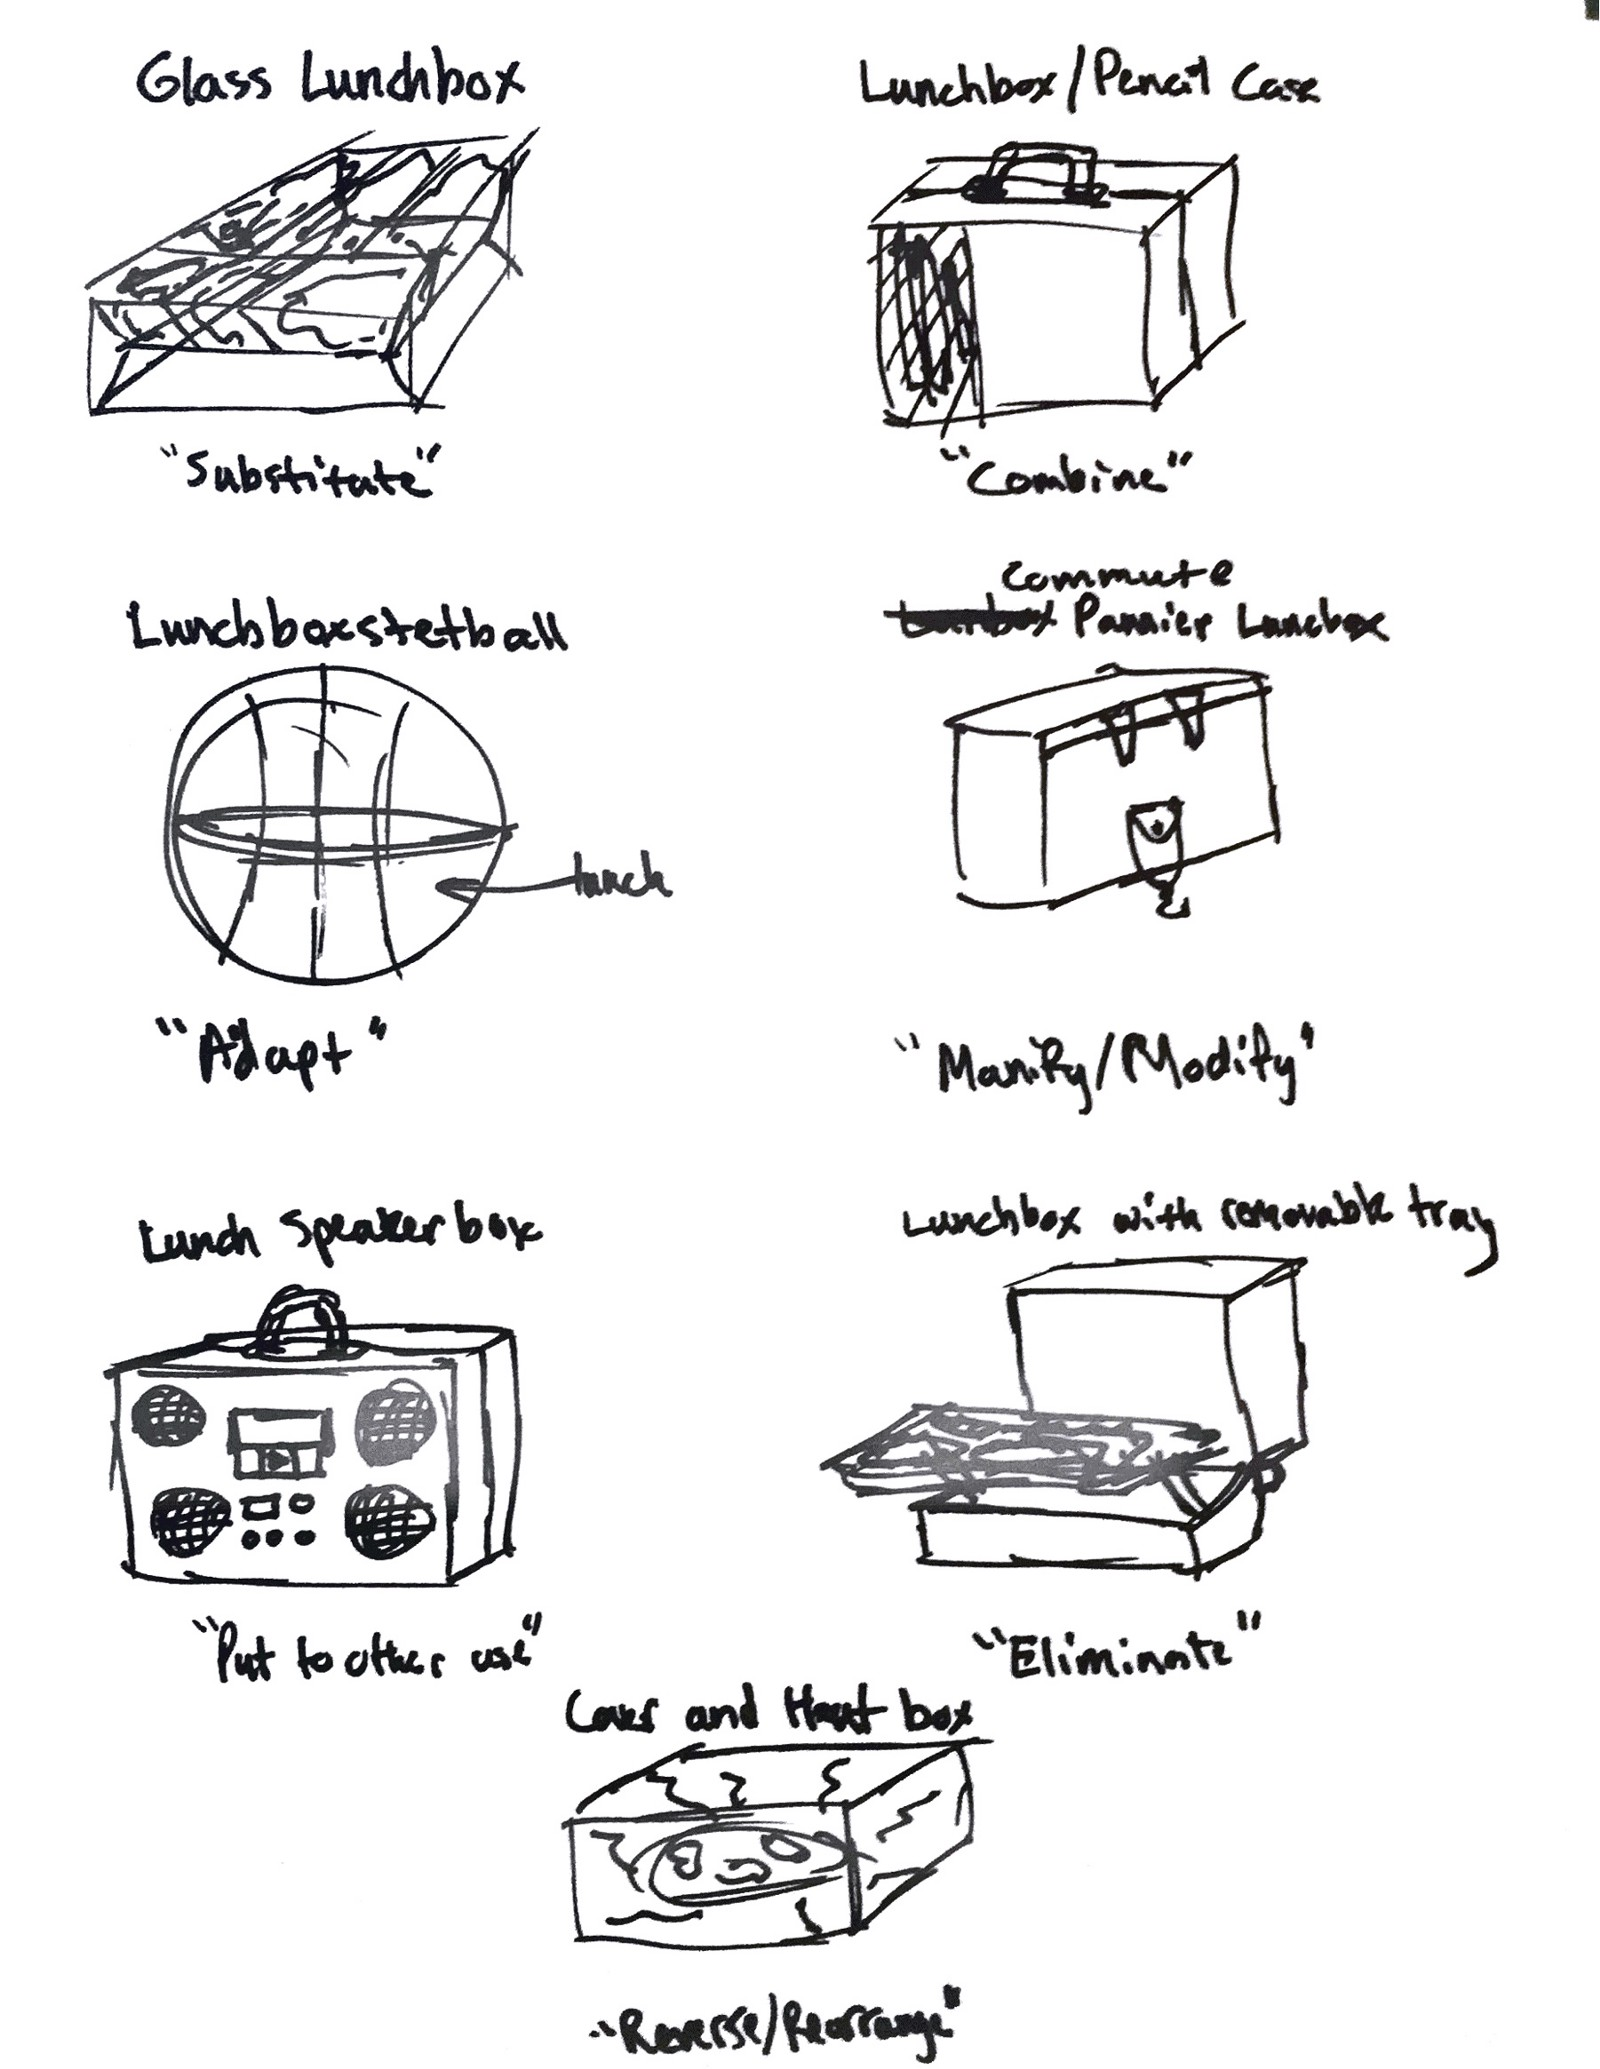 Glass Lunchbox
"Substitute"
Lunchbox/Pencil Case
"Combine"
Lunchboxstetball
lunch
"Adapt"
Commute
Pannier Lunchbox
"Manify/Modify"
Lunch Speaker box
"Put to other use"
Lunchbox with removable tray
"Eliminate"
and Heat box
"Reverse/Rearrange"